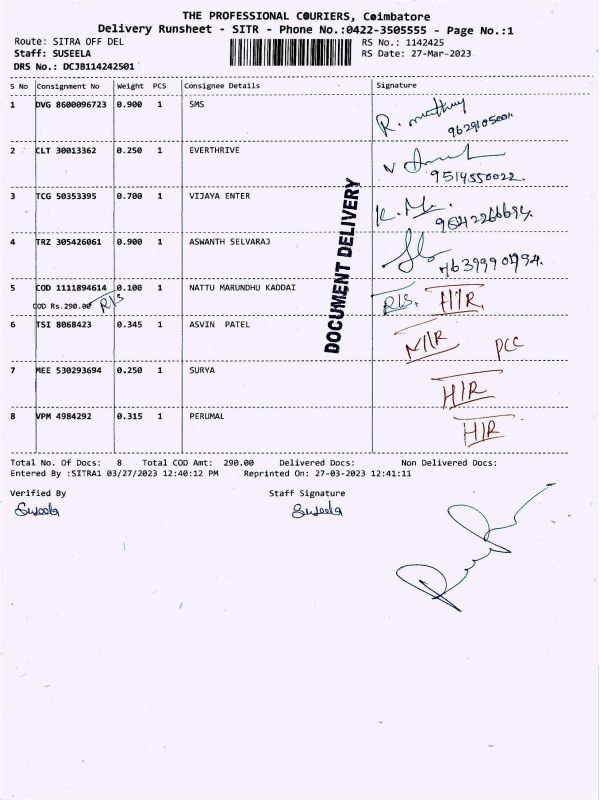 THE PROFESSIONAL COURIERS, Coimbatore
Delivery Runsheet - SITR - Phone No.:0422-3505555 - Page No.:1
Route: SITRA OFF DEL
RS No.: 1142425
Staff: SUSEELA
RS Date: 27-Mar-2023
DRS No.: DCJB114242501
S No Consignment No Weight PCS Consignee Details Signature
1 DVG 8600096723 0.900 1 SMS
9629105001
2 CLT 30013362 0.250 1 EVERTHRIVE
9514550022.
3 TCG 50353395 0.700 1 VIJAYA ENTER
4 TRZ 305426061 0.900 1 ASWANTH SELVARAJ
5 COD 1111894614 0.100 1 NATTU MARUNDHU KADDAI R/S. H/R
COD Rs.290.00 R/S
6 TSI 8068423 0.345 1 ASVIN PATEL N/R PCC
7 MEE 530293694 0.250 1 SURYA H/R
8 VPM 4984292 0.315 1 PERUMAL H/R
DOCUMENT DELIVERY
Total No. Of Docs: 8 Total COD Amt: 290.00 Delivered Docs: Non Delivered Docs:
Entered By :SITRA1 03/27/2023 12:40:12 PM Reprinted On: 27-03-2023 12:41:11
Verified By Staff Signature
Suseela Suseela